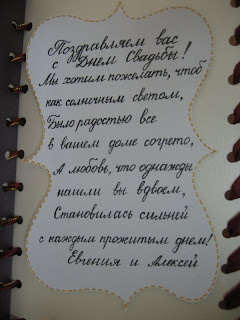 Поздравляем вас
с Днем Свадьбы!
Мы хотим пожелать, чтоб
как солнечным светом,
Было радостью все
в вашем доме согрето,
А любовь, что однажды
нашли вы вдвоем,
Становилась сильней
с каждым прожитым днем!
Евгения и Алексей